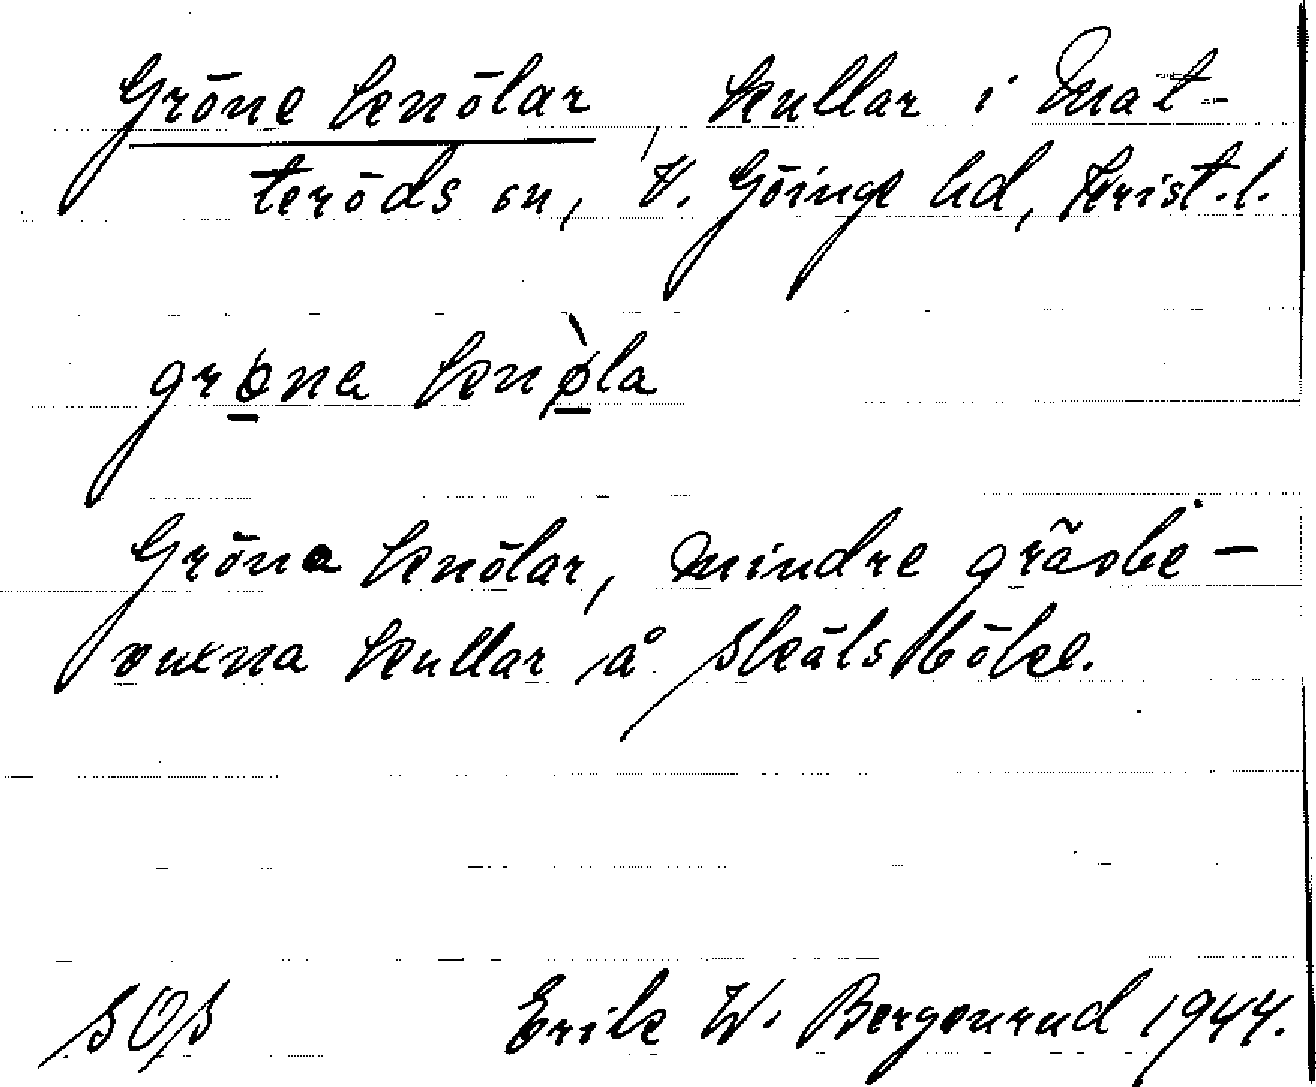 Gröne knölar, kullar i Mat-
teröds sn, V. Göinge hd, Krist. l.
grø̲na knø̲̀la
Gröna knölar, mindre gräsbe-
vuxna kullar å Skälsböke.
SOS Erik W. Bergenrud 1944.